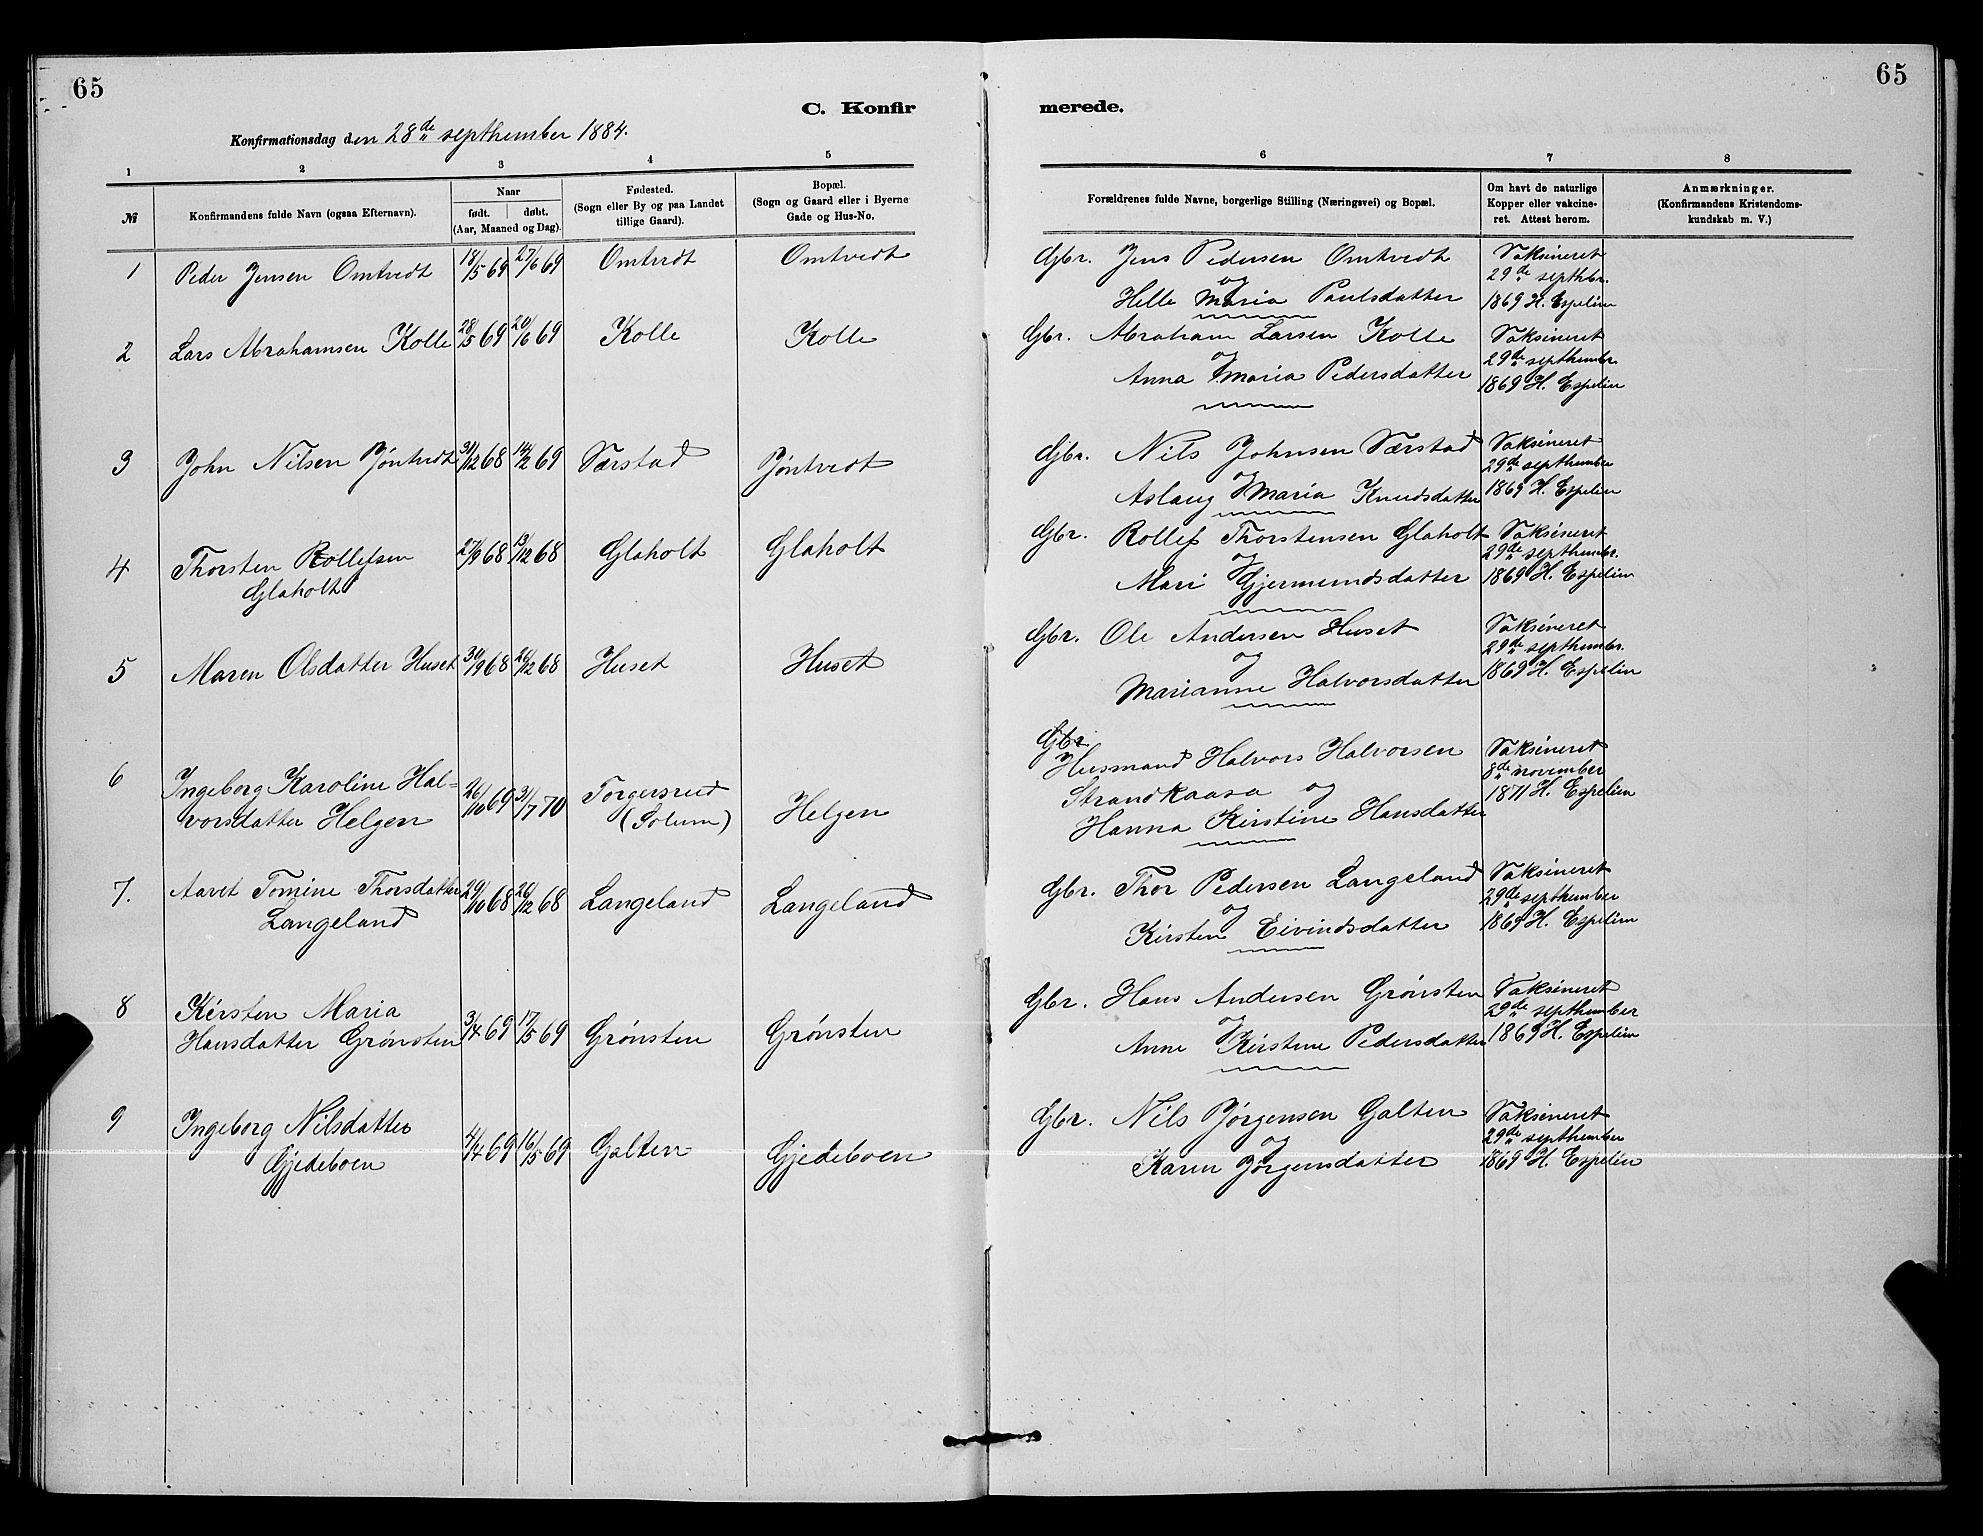 65
65
C. Konfirmerede.
Konfirmationsdag den 28de septhember 1884.
1 2 3 4 5 6 7 8
№
Konfirmandens fulde Navn (ogsaa Efternavn).
Naar
født. døbt.
(Aar, Maaned og Dag).
Fødested.
(Sogn eller By og paa Landet
tillige Gaard).
Bopæl.
(Sogn og Gaard eller i Byerne
Gade og Hus-No.
Forældrenes fulde Navne, borgerlige Stilling (Næringsvei) og Bopæl.
Om havt de naturlige
Kopper eller vakcine-
ret. Attest herom.
Anmærkninger.
(Konfirmandens Kristendoms-
kundskab m. V.)
1 Peder Jensen Omtvedt 18/5 69 27/6 69 Omtvedt Omtvedt Gbr. Jens Pedersen Omtvedt
og
Helle Maria Paulsdatter
Vaksineret
29de septhbr.
1869 H. Espelien
2 Lars Abrahamsen Kolle 28/5 69 20/6 69 Kolle Kolle Gbr. Abraham Larsen Kolle
og
Anna Maria Pedersdatter
Vaksineret
29de septhembr.
1869 H. Espelien
3 John Nilsen Jøntvedt 31/12 68 14/2 69 Værstad Jøntvedt Gbr. Nils Johnsen Værstad
og
Aslaug Maria Knudsdatter
Vaksineret
29de septhember
1869 H. Espelien
4 Thorsten Rollefsen
Glaholt
27/9 68 13/12 68 Glaholt Glaholt Gbr. Rollef Thorstensen Glaholt
og
Mari Gjermundsdatter
Vaksineret
29de septhembr.
1869 H. Espelien
5 Maren Olsdatter Huset 30/9 68 26/12 68 Huset Huset Gbr. Ole Andersen Huset
og
Marianne Halvorsdatter
Vaksineret
29de septhembr.
1869 H. Espelien
6 Ingeborg Karoline Hal-
vorsdatter Helgen
26/10 69 31/7 70 Torgersrud
(Solum)
Helgen
Gbr.
Husmand Halvors Halvorsen
Strandkaasa og
Hanna Kirstine Hansdatter
Vaksineret
8de november
1871 H. Espelien
7. Aavet Tomine Thorsdatter
Langeland
29/10 68 26/12 68 Langeland Langeland Gbr. Thor Pedersen Langeland
og
Kirsten Eivindsdatter
Vaksineret
29de septhember
1869 H. Espelien
8 Kirsten Maria
Hansdatter Grønsten
3/4 69 17/5 69 Grønsten Grønsten Gbr. Hans Andersen Grønsten
og
Anne Kirstine Pedersdatter
Vaksineret
29de septhember
1869 H. Espelien
9 Ingeborg Nilsdatter
Gjedeboen
4/4 69 16/5 69 Galten Gjedeboen Gbr. Nils Jørgensen Galten
og
Karen Jørgensdatter
Vaksineret
29de septhember
1869 H. Espelien